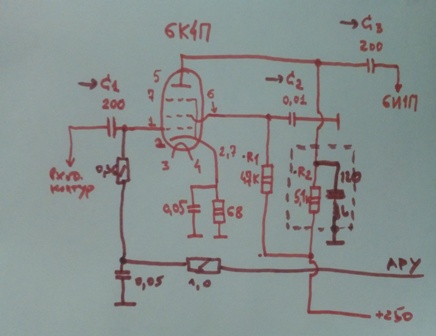 6К4П
→C3
200
6И1П
→C1
200
5
7
6
→C2
0,01
1
2
3
4
2,7
R1
47К
R2
5,1к
120
0,05
68
Вход.
контур
0,05
1,0
АРУ
+250